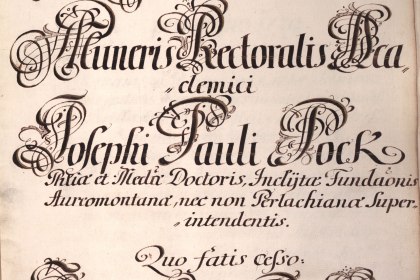 Muneris Rectoralis Aca
„demici
Josephi Pauli Pock
Philiæ et Medæ Doctoris, Inclÿtæ Fundaõnis
Aureomontanæ, nec non Perlachianæ Super„
„intendentis.
Quo fatis cesso: